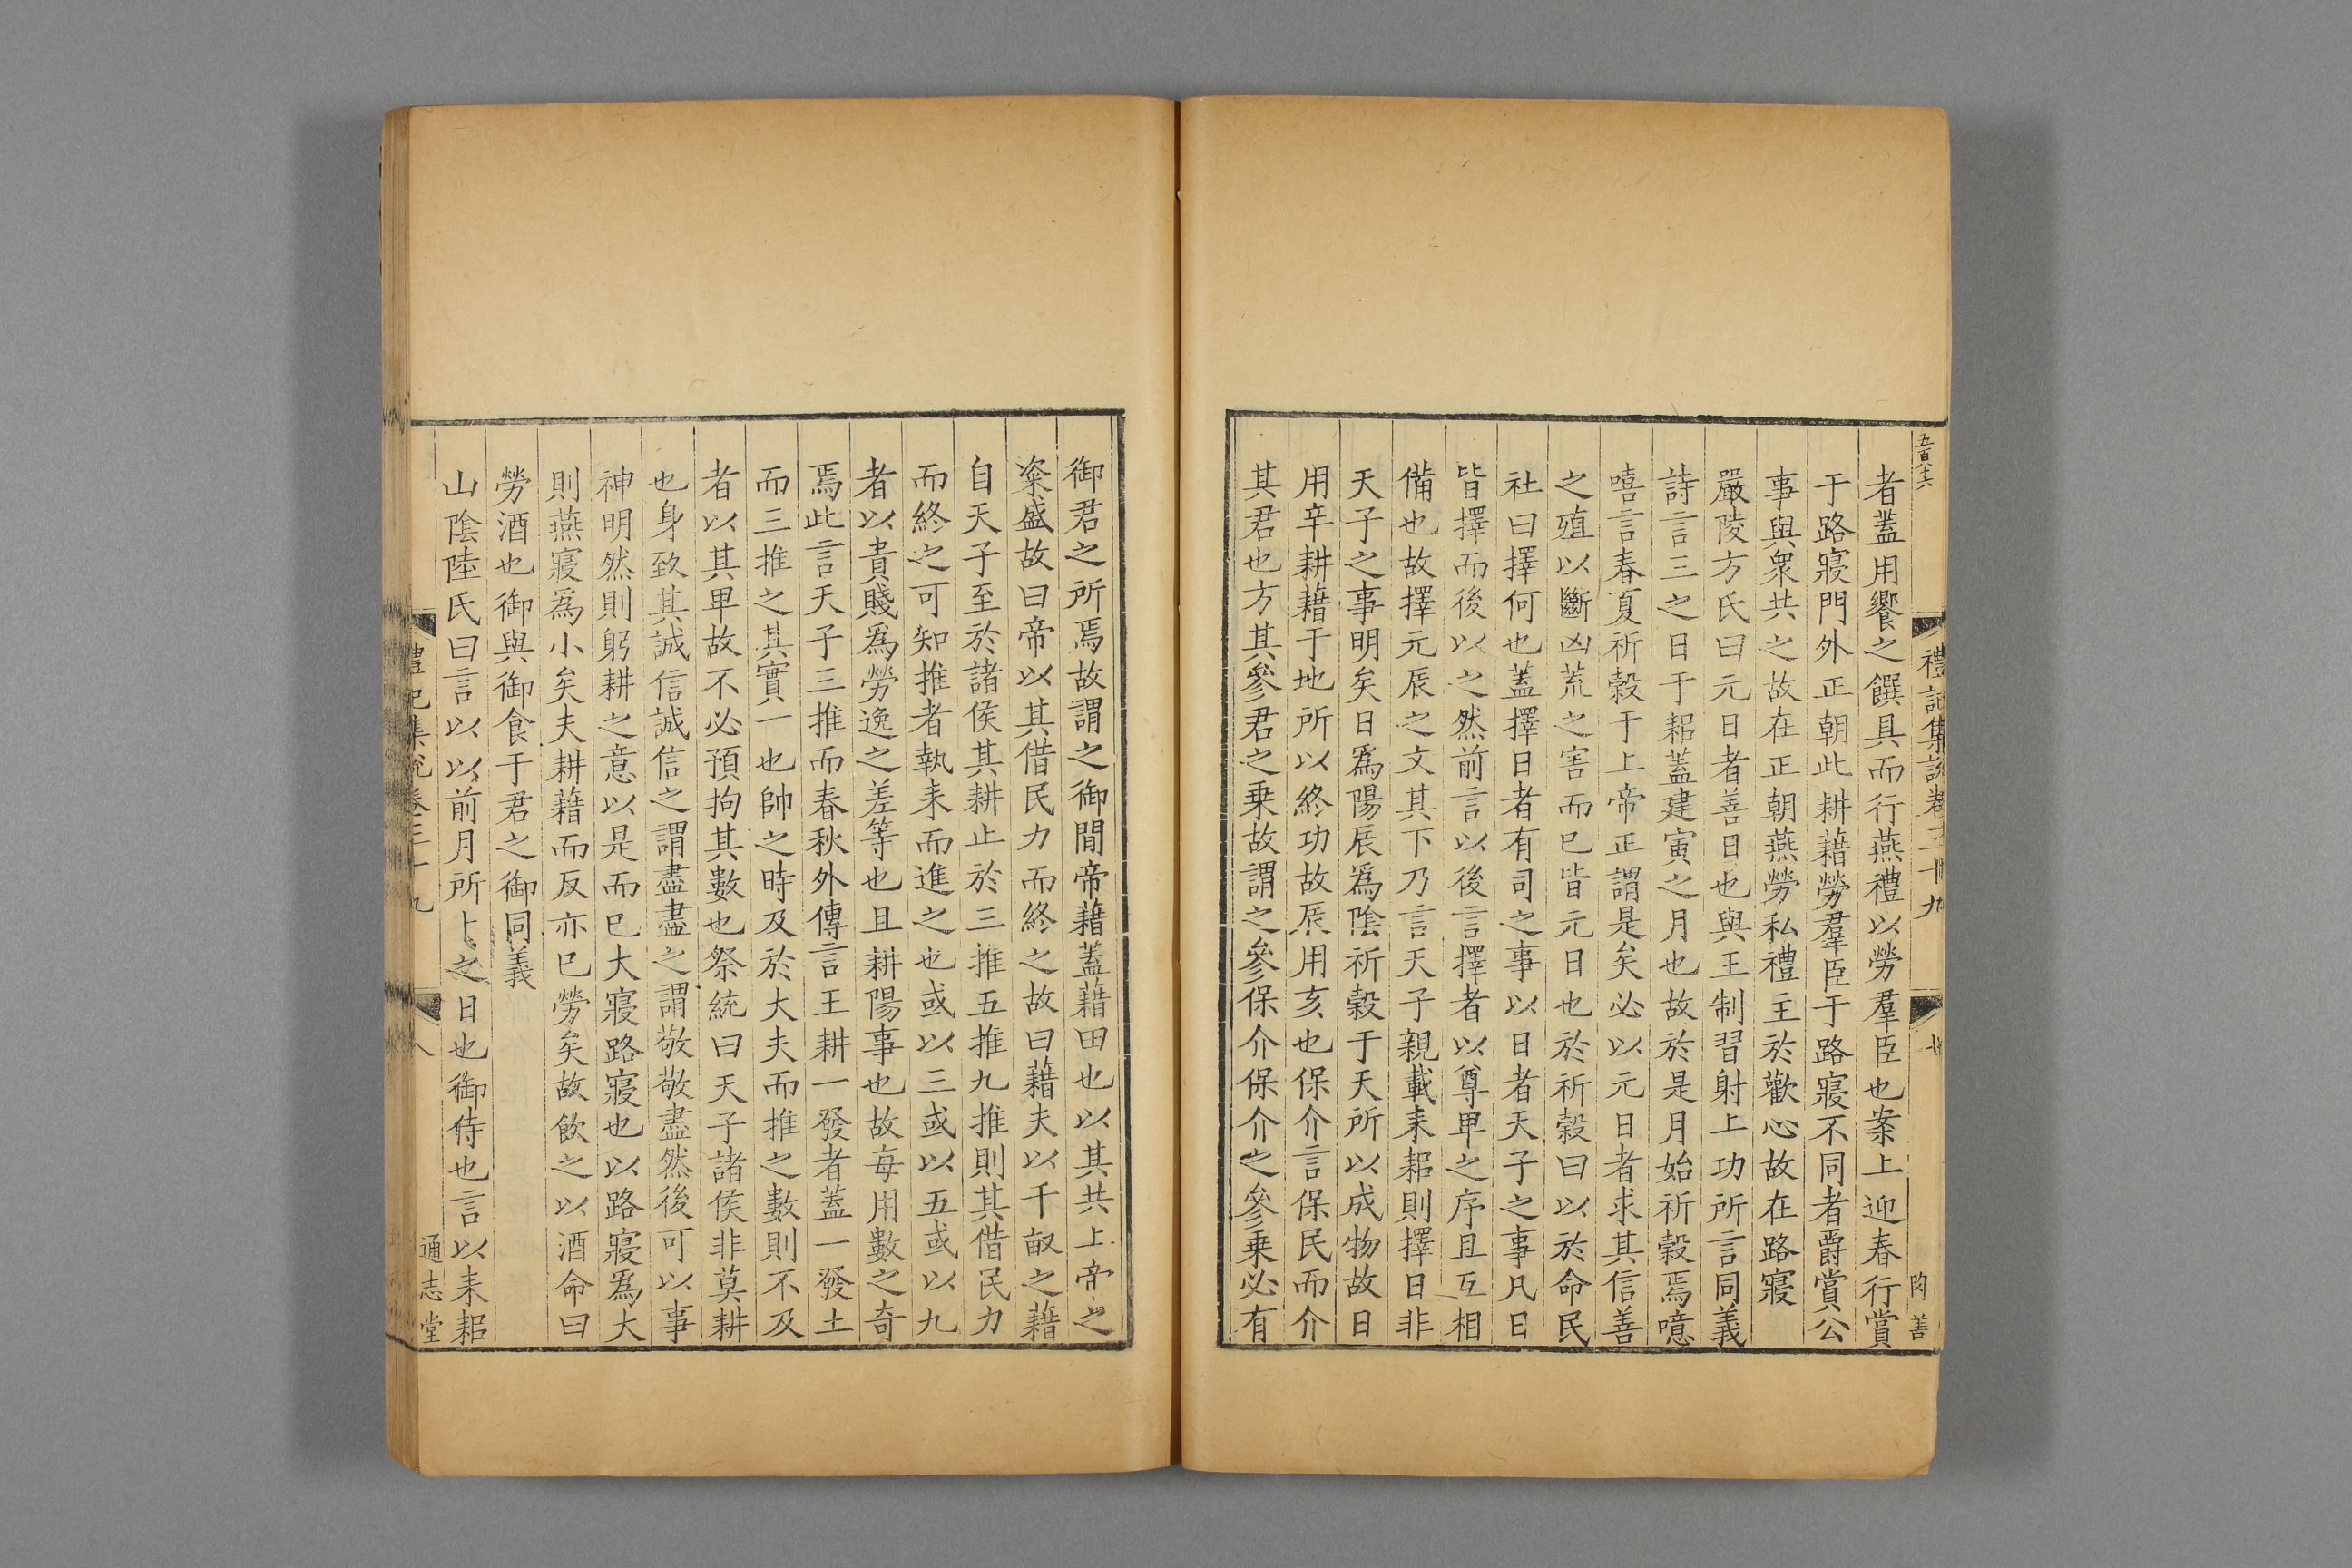 五百八十六
禮記集說卷三十九
陶善
者蓋用饗之饌具而行燕禮以勞羣臣也案上迎春行賞
于路寢門外正朝此耕藉勞羣臣于路寢不同者爵賞公
事與衆共之故在正朝燕勞私禮主於歡心故在路寢
嚴陵方氏曰元日者善日也與王制習射上功所言同義
詩言三之日于耜蓋建寅之月也故於是月始祈穀焉噫
嘻言春夏祈穀于上帝正謂是矣必以元日者求其信善
之殖以斷凶荒之害而已皆元日也於祈穀曰以於命民
社曰擇何也蓋擇日者有司之事以日者天子之事凡日
皆擇而後以之然前言以後言擇者以尊卑之序且互相
備也故擇元辰之文其下乃言天子親載耒耜則擇日非
天子之事明矣日爲陽辰爲陰祈穀于天所以成物故日
用辛耕藉于地所以終功故辰用亥也保介言保民而介
其君也方其參君之乗故謂之參保介保介之參乗必有
御君之所焉故謂之御間帝藉蓋藉田也以其共上帝之
粢盛故曰帝以其借民力而終之故曰藉夫以千畝之藉
自天子至於諸侯其耕止於三推五推九推則其借民力
而終之可知推者執耒而進之也或以三或以五或以九
者以貴賤爲勞逸之差等也且耕陽事也故每用數之奇
焉此言天子三推而春秋外傳言王耕一發者蓋一發土
而三推之其實一也帥之時及於大夫而推之數則不及
者以其卑故不必預拘其數也祭統曰天子諸侯非莫耕
也身致其誠信誠信之謂盡盡之謂敬敬盡然後可以事
神明然則躬耕之意以是而已大寢路寢也以路寢爲大
則燕寢爲小矣夫耕藉而反亦已勞矣故飲之以酒命曰
勞酒也御與御食于君之御同義
山陰陸氏曰言以以前月所卜之日也御侍也言以耒耜
禮記集說卷三十九
八
通志堂